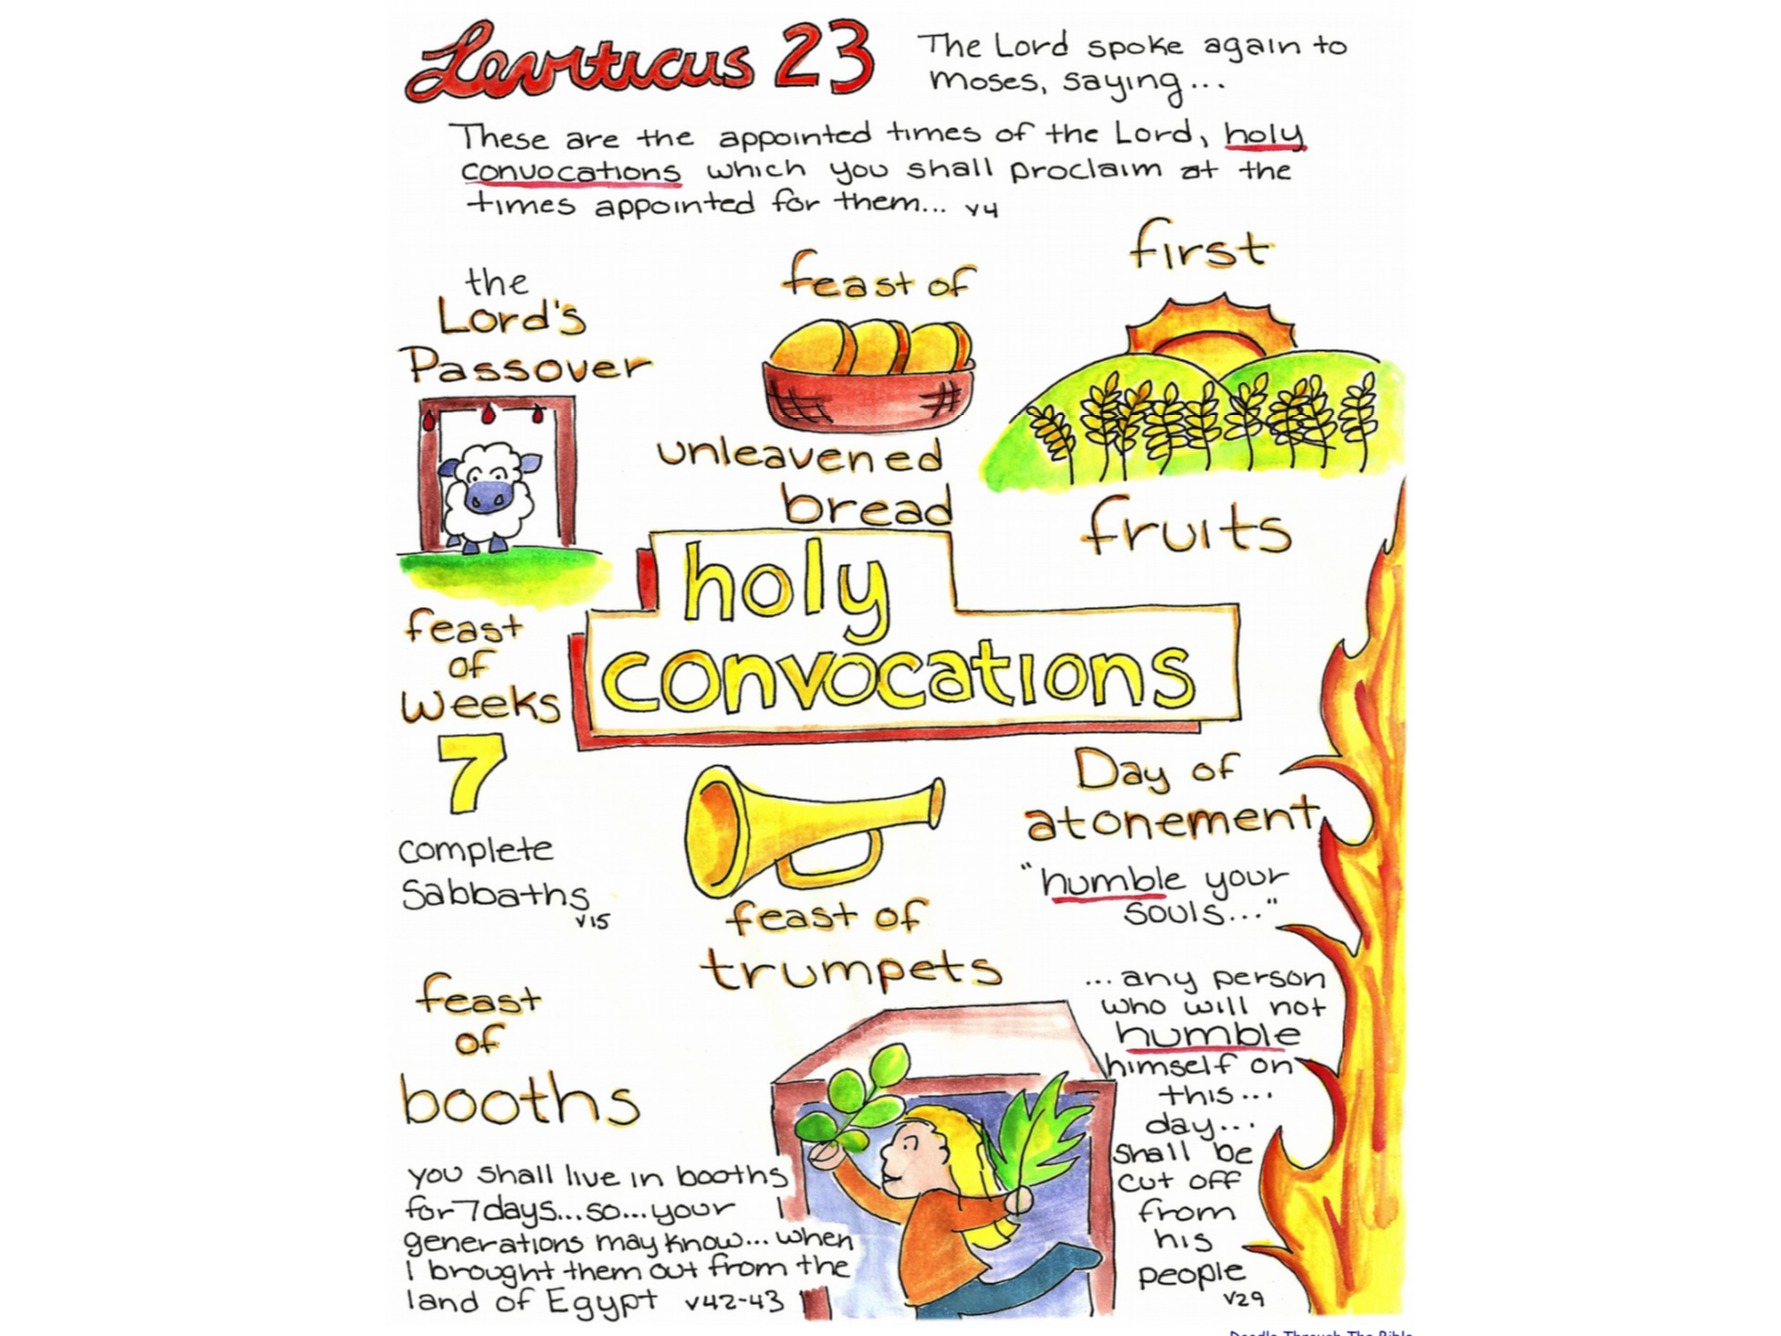 Leviticus 23
The Lord spoke again to
Moses, saying...
These are the appointed times of the Lord, holy
convocations which you shall proclaim at the
times appointed for them... v4
the
Lord's
Passover
feast of
unleavened
bread
first
fruits
holy
convocations
feast
of
weeks
7
complete
Sabbaths
v15
feast of
trumpets
Day of
atonement
"humble your
souls..."
...any person
who will not
humble
himself on
this...
day...
shall be
cut off
from
his
people
v29
feast
of
booths
you shall live in booths
for 7 days...so...your
generations may know...when
I brought them out from the
land of Egypt v42-43
Doodle Through The Bible